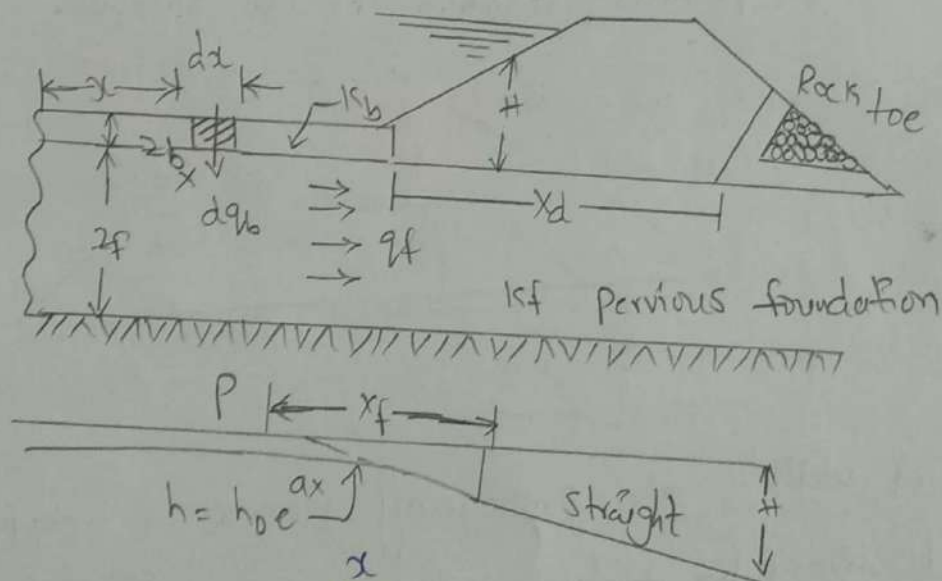 dx
x
Kb
H
Rock toe
Zb
x
dqb
Xd
Zf
qf
Kf Pervious foundation
P
Xf
h = h₀e^ax
straight
H
x